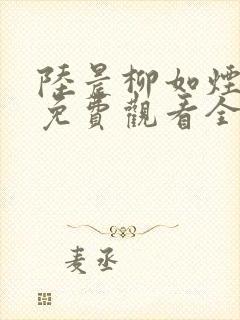 陸景柳如煙
免費觀看全
麦丞